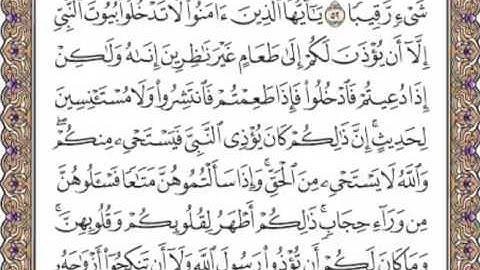 شَىْءٍ رَّقِيبًا ۝٥٢ يَٰٓأَيُّهَا ٱلَّذِينَ ءَامَنُوا۟ لَا تَدْخُلُوا۟ بُيُوتَ ٱلنَّبِىِّ
إِلَّآ أَن يُؤْذَنَ لَكُمْ إِلَىٰ طَعَامٍ غَيْرَ نَٰظِرِينَ إِنَىٰهُ وَلَٰكِنْ
إِذَا دُعِيتُمْ فَٱدْخُلُوا۟ فَإِذَا طَعِمْتُمْ فَٱنتَشِرُوا۟ وَلَا مُسْتَـْٔنِسِينَ
لِحَدِيثٍ ۚ إِنَّ ذَٰلِكُمْ كَانَ يُؤْذِى ٱلنَّبِىَّ فَيَسْتَحْىِۦ مِنكُمْ ۖ
وَٱللَّهُ لَا يَسْتَحْىِۦ مِنَ ٱلْحَقِّ ۚ وَإِذَا سَأَلْتُمُوهُنَّ مَتَٰعًا فَسْـَٔلُوهُنَّ
مِن وَرَآءِ حِجَابٍ ۚ ذَٰلِكُمْ أَطْهَرُ لِقُلُوبِكُمْ وَقُلُوبِهِنَّ ۚ
وَمَا كَانَ لَكُمْ أَن تُؤْذُوا۟ رَسُولَ ٱللَّهِ وَلَآ أَن تَنكِحُوٓا۟ أَزْوَٰجَهُۥ